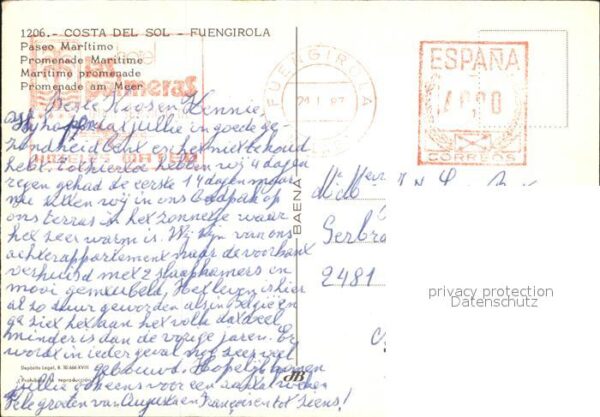 1206.- COSTA DEL SOL - FUENGIROLA
Paseo Marítimo
Promenade Maritime
Maritime promenade
Promenade am Meer
hotel
Las Palmeras
FUENGIROLA
ESPAÑA
CORREOS
Beste Koos en Hennie,
Wij hopen dat jullie in goede ge-
zondheid bent en het niet te koud
hebt. Tot hiertoe hebben wij 4 dagen
regen gehad de eerste 14 dagen maar
nu zitten wij in ons badpak op
ons terras in het zonnetje waar
het zeer warm is. Wij zijn van ons
achterappartement naar de voorkant
verhuisd met 2 slaapkamers en
mooi gemeubeld. Het leven is hier
al zo duur geworden als in België en
ge ziet het aan het volk dat veel
minder is dan de vorige jaren. Er
wordt in ieder geval nog zeer veel
gebouwd. Hopelijk komen
jullie ook eens voor een aantal weken
Vele groeten van Augusta en François en tot ziens!
BAENA
Gerbra
2481
privacy protection
Datenschutz
Depósito Legal, B. 30.666-XVIII
Prohibida la reproducción